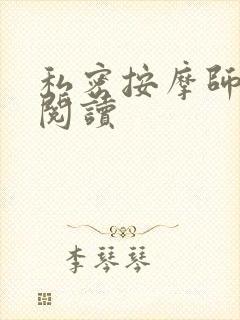 私密按摩師
閱讀
李琴琴